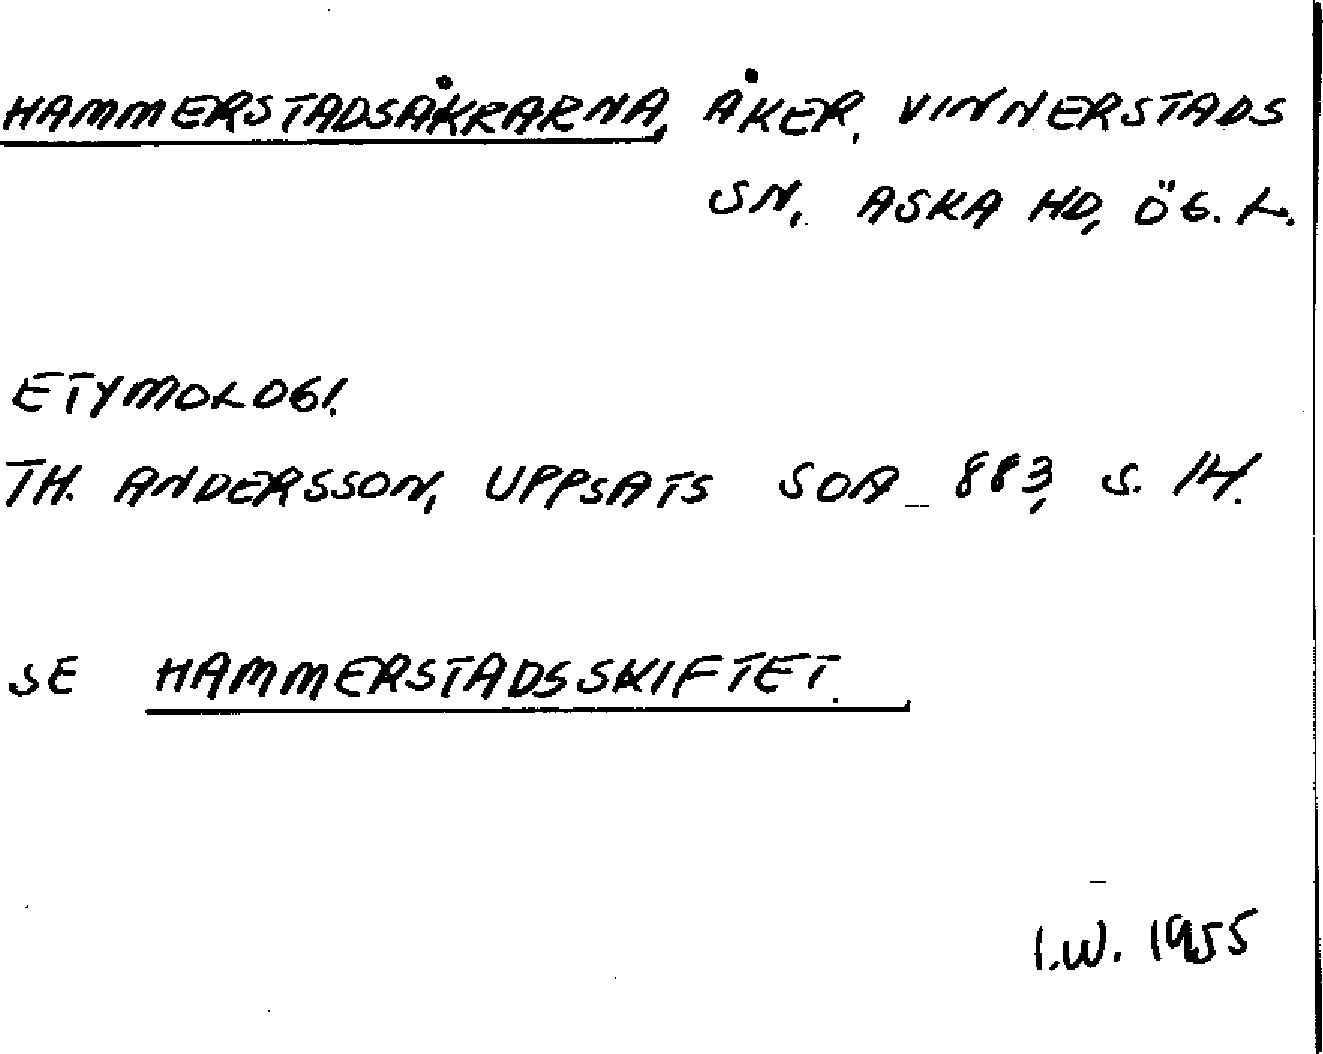 HAMMERSTADSÅKRARNA, ÅKER, VINNERSTADS
SN, ASKA HD, ÖG. L.
ETYMOLOGI.
TH. ANDERSSON, UPPSATS SOA 883, S. 14.
SE HAMMERSTADSSKIFTET.
I.W. 1955